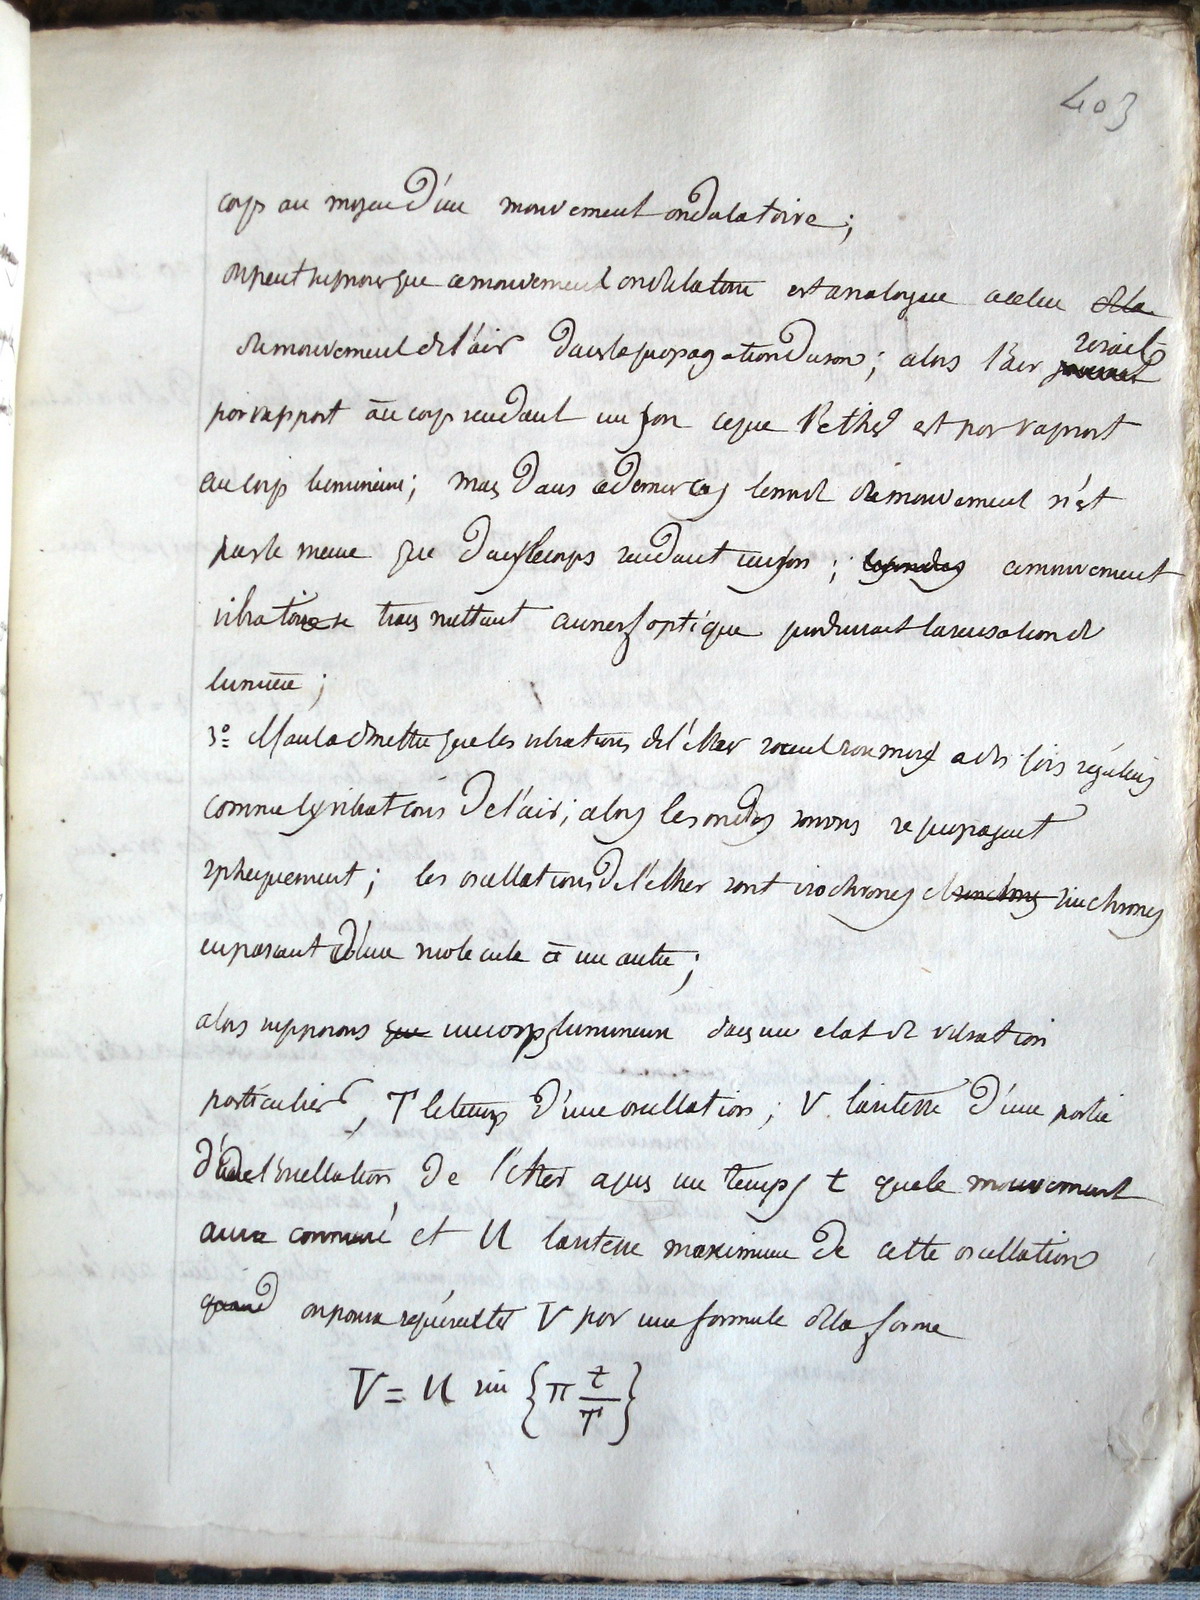 403
corps au moyen d'un mouvement ondulatoire;
on peut supposer que ce mouvement ondulatoire est analogue a celui de la
du mouvement de l'air dans la propagation du son; alors l'air serait
par rapport au corps rendant un son ce que l'ether est par rapport
au corps lumineux; mais dans ce dernier cas du mouvement n'est
pas le meme que dans le corps rendant un son; les ondes ce mouvement
vibratoire se transmettant au nerf optique produirait la sensation de
lumiere;
3º Il faut admettre que les vibrations de l'ether soient soumises a des lois régulieres
comme les vibrations de l'air; alors les ondes sonores se propagent
spheriquement; les oscillations de l'ether sont isochrones et sinchrones
en passant d'une molecule à une autre;
alors supposons que un corps lumineux dans un etat de vibration
particulier, T le temps d'une oscillation; V la vitesse d'une partie
de l'oscillation de l'ether apres un temps t que le mouvement
aura commencé et U la vitesse maximum de cette oscillation
quand on pourra représenter V par une formule de la forme
V = U sin {π t/T}